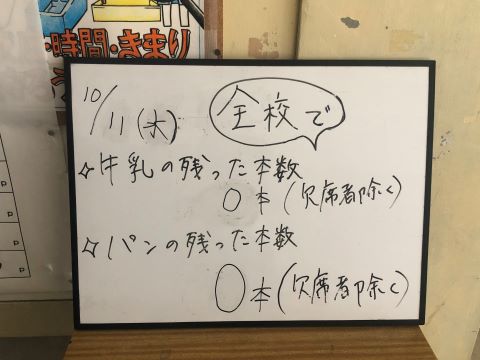 ・時間・きまり
10/11(水)
全校で
☆牛乳の残った本数
0本(欠席者除く)
☆パンの残った本数
0本(欠席者除く)
P
P
P
P
P